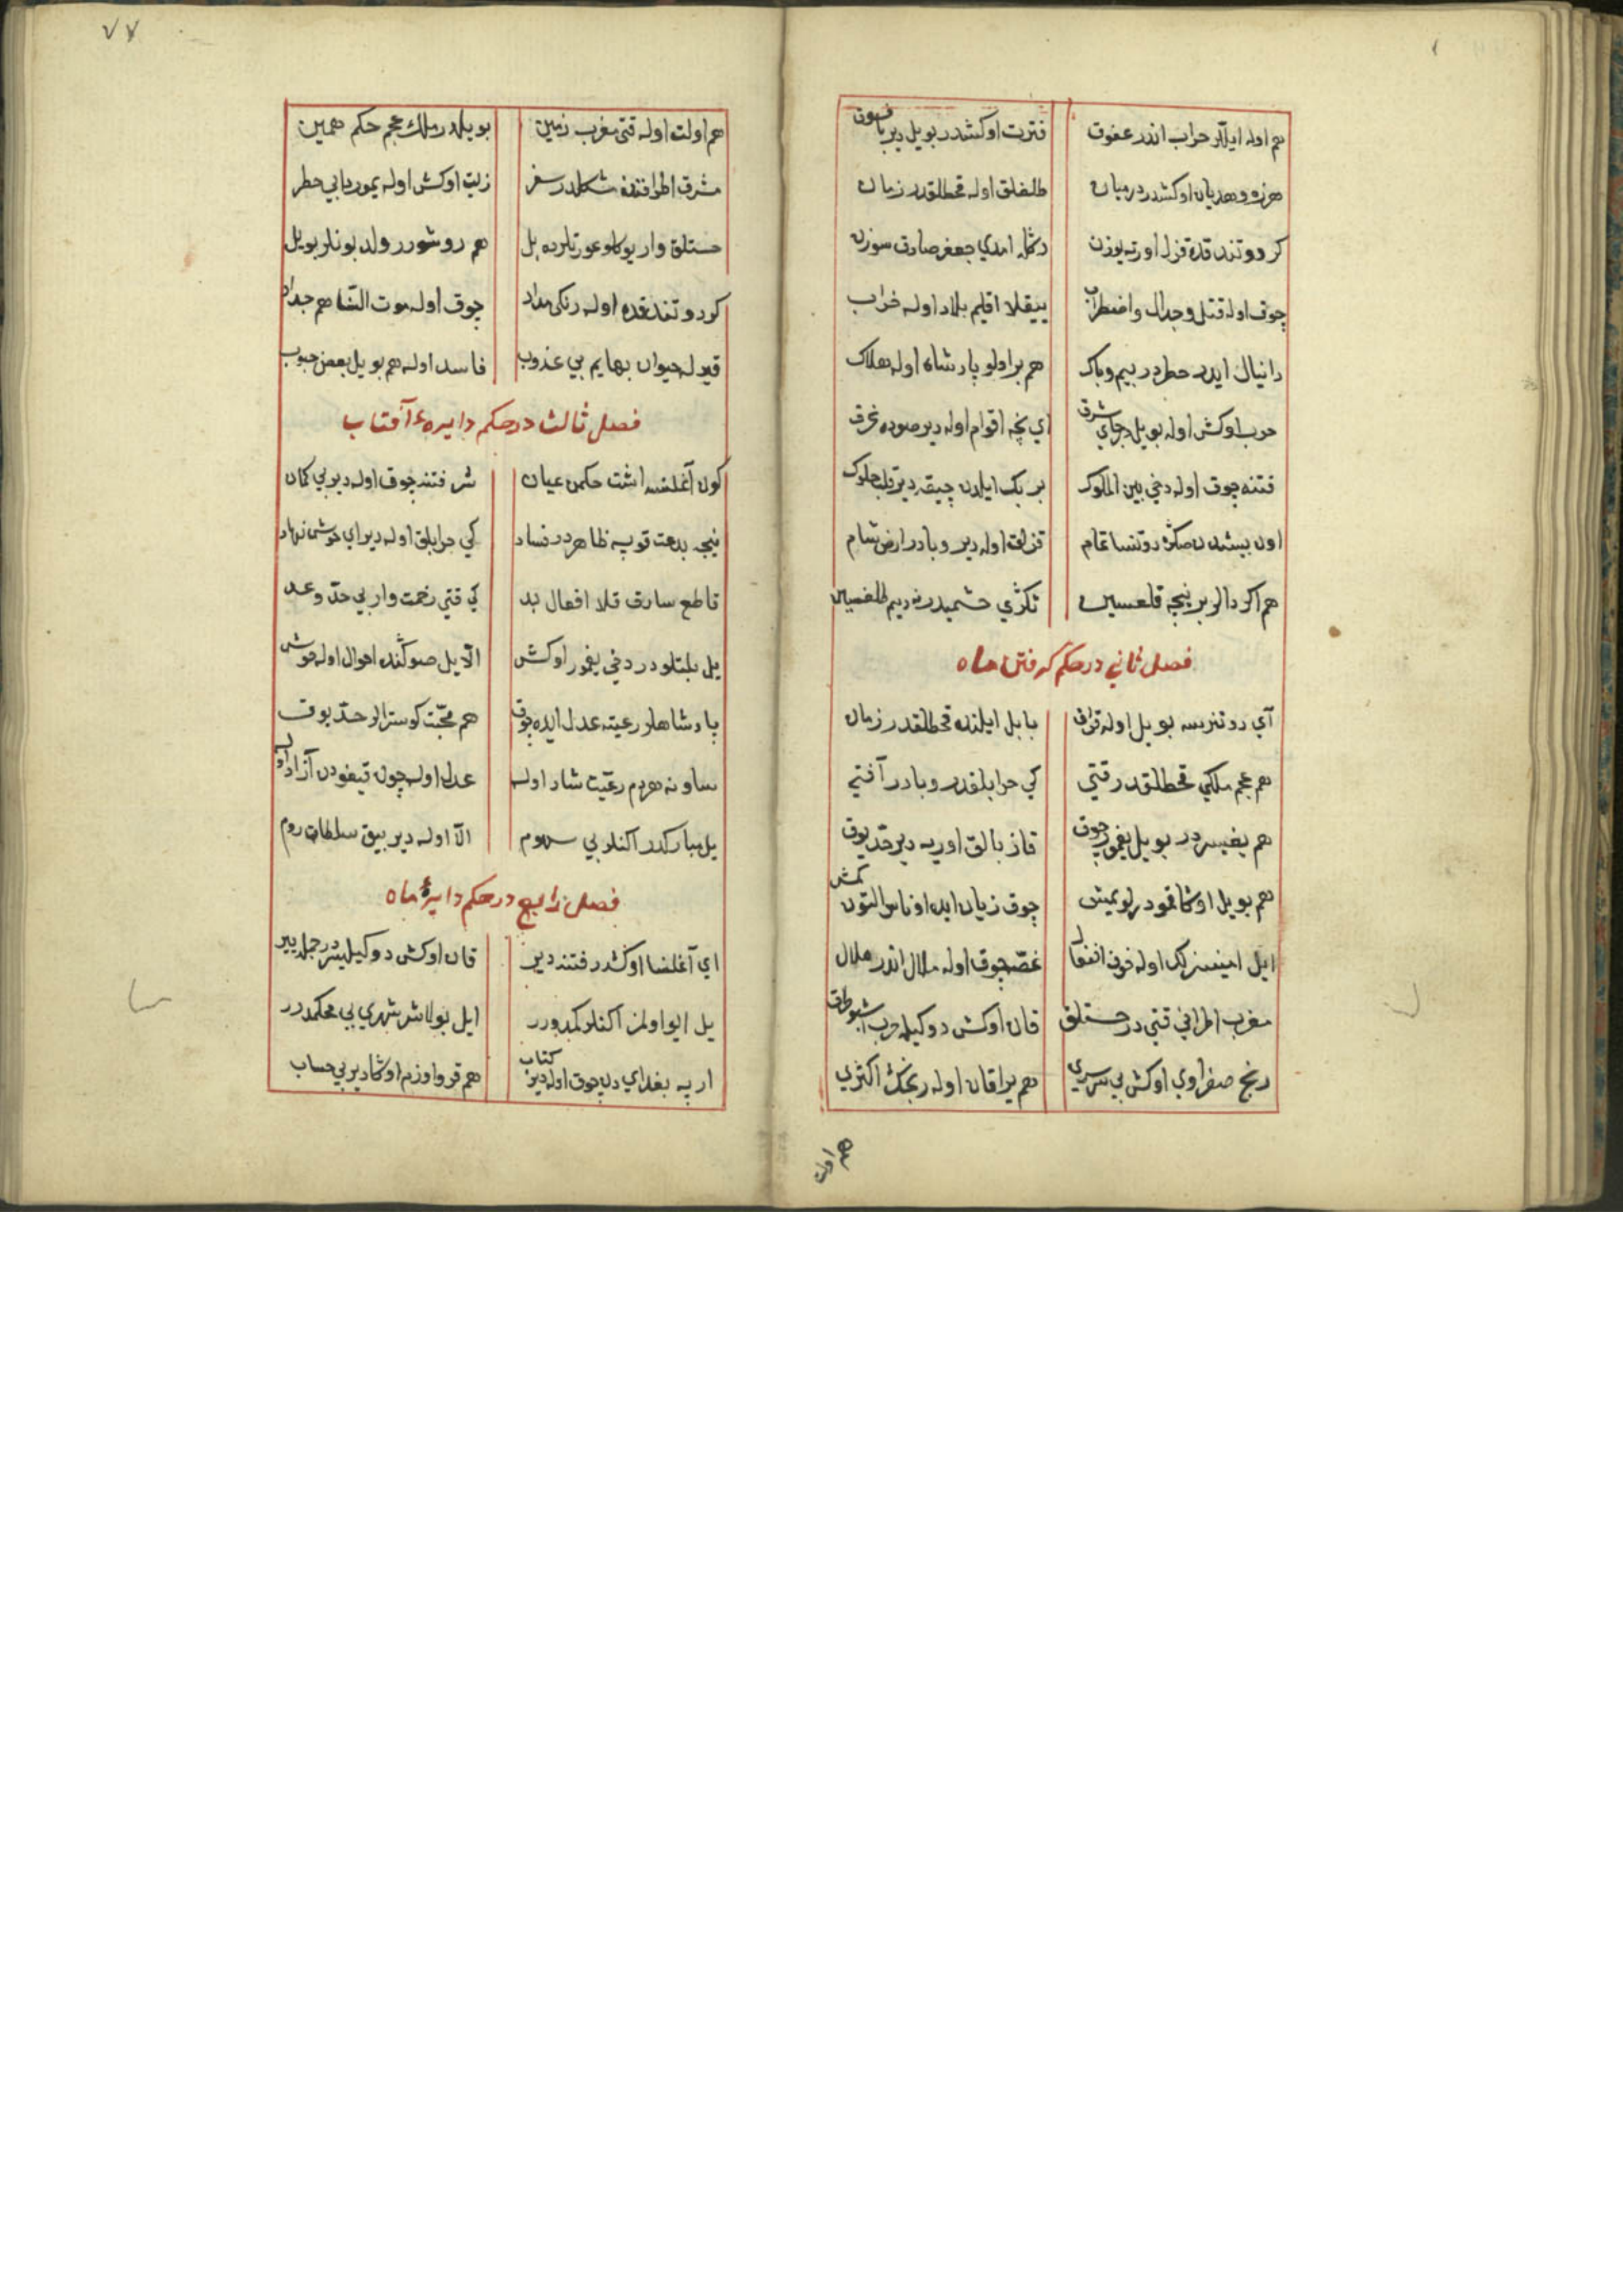 هم اوله ایللر خراب اندر عفوق فترت اوكشدر بو ییل دیر
هرزه و هذیان اوكشدر درمیان ظلملق اوله قحطلقدر زمان
كر دوتند قده قزل اورته یوزن دكله امدي جعفر صادق سوزن
چوق اوله قتل و جدال و اضطراب ییقلا اقلیم بلاد اوله خراب
دانیال ایدر خطردر بیم و باك هم بر اولو پادشاه اوله هلاك
حرب اوكش اوله بو ییل در جاي شرق اي نچه اقوام اوله دیر صوده غرق
فتنه چوق اوله دخي بین الملوك بر بك ایلدن چیقه دیر
اون بیشدن صكره دوتسا تمام قزلق اوله دیر وبادر ارض شام
هم اكر دالر بر نیچه قلعسین تكري خشمیدر
فصل ثاني در حكم گرفتن ماه
آي دوتنرسه بو ییل اوله قران بابل ایلنده قحطلقدر زمان
هم عجم ملكي قحطلقدر قتي كي خرابلقدر وبادر آفتي
هم بو ییل یغمور چوق قاز بالق اوریه دیر حدّ یوق
هم بو ییل اوكشا قمودر لو یمیش چوق زیان ایده اوناس التون كمش
ایل امینسزلك اوله خوف غصّه چوق اوله ملال اندر هلال
مغرب اطرافي قتي در خستلق قان اوكش دوكیله حرب
رنج صفراوي اوكش بي سرسري هم یراقان اوله رنجك اكثري
هم اولت
٧٧
هم اولت اوله قتي مغرب زمین بو ییلدر ملك عجم حكم همین
مشرق اطرافنده سفر زیت اوكش اوله یمورد بي خطر
خستلق وار یوكلو عورتلرده بل هم دوشورر ولد بونلر بو ییل
كر دوتند قده اوله رنكي مداد چوق اوله موت النسا هم
قیرله حیوان بهایم بي عذوب فاسد اوله هم بو ییل بعض حبوب
فصل ثالث در حكم دایرۀ آفتاب
كون آغلنسه اشت حكمن عیان شر فتنه چوق اوله دیر بي كمان
نیچه بدعت قوپه ظاهر در فساد كي خرابلق اوله دیر اي خوش نهاد
قاطع سارق قلا افعال بد كي قتي زحمت وار بي حدّ و عد
ییل بلتلو در دخي یغمور اوكش الّا ییل صوكنده احوال اوله خوش
پادشاهلر رعیته عدل ایده چوق هم محبّت كوسترالر حدّ یوق
ساونه هردم رعیّت شاد اوله عدل اوله چون قیغودن آزاد اوله
ییل مباركدر اكنلر بي سهوم الّا اوله دیر بیق سلطان روم
فصل رابع در حكم دایرۀ ماه
اي آغلنسا اوكشدر فتنه دیر قان اوكش دوكیلیسر در جمله ییر
ییل ایو اولمز اكنلر كمدورر ایل بولاشر شهري بي محكمدرر
ارپه بغداي دن چوق اوله دیر كتاب هم قرو اوزم اوكشا دیر بي حساب